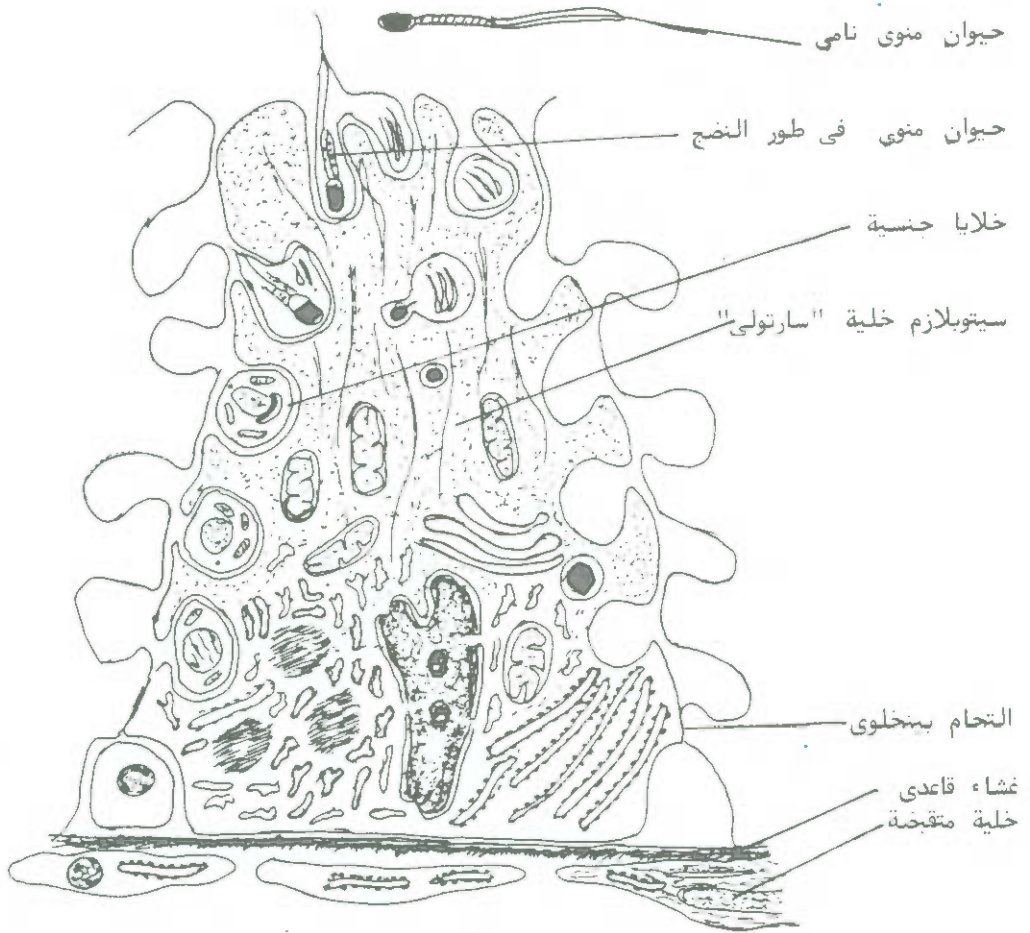 حيوان منوى نامى
حيوان منوي فى طور النضج
خلايا جنسية
سيتوبلازم خلية "سارتولى"
التحام بينخلوى
غشاء قاعدى
خلية متقبضة